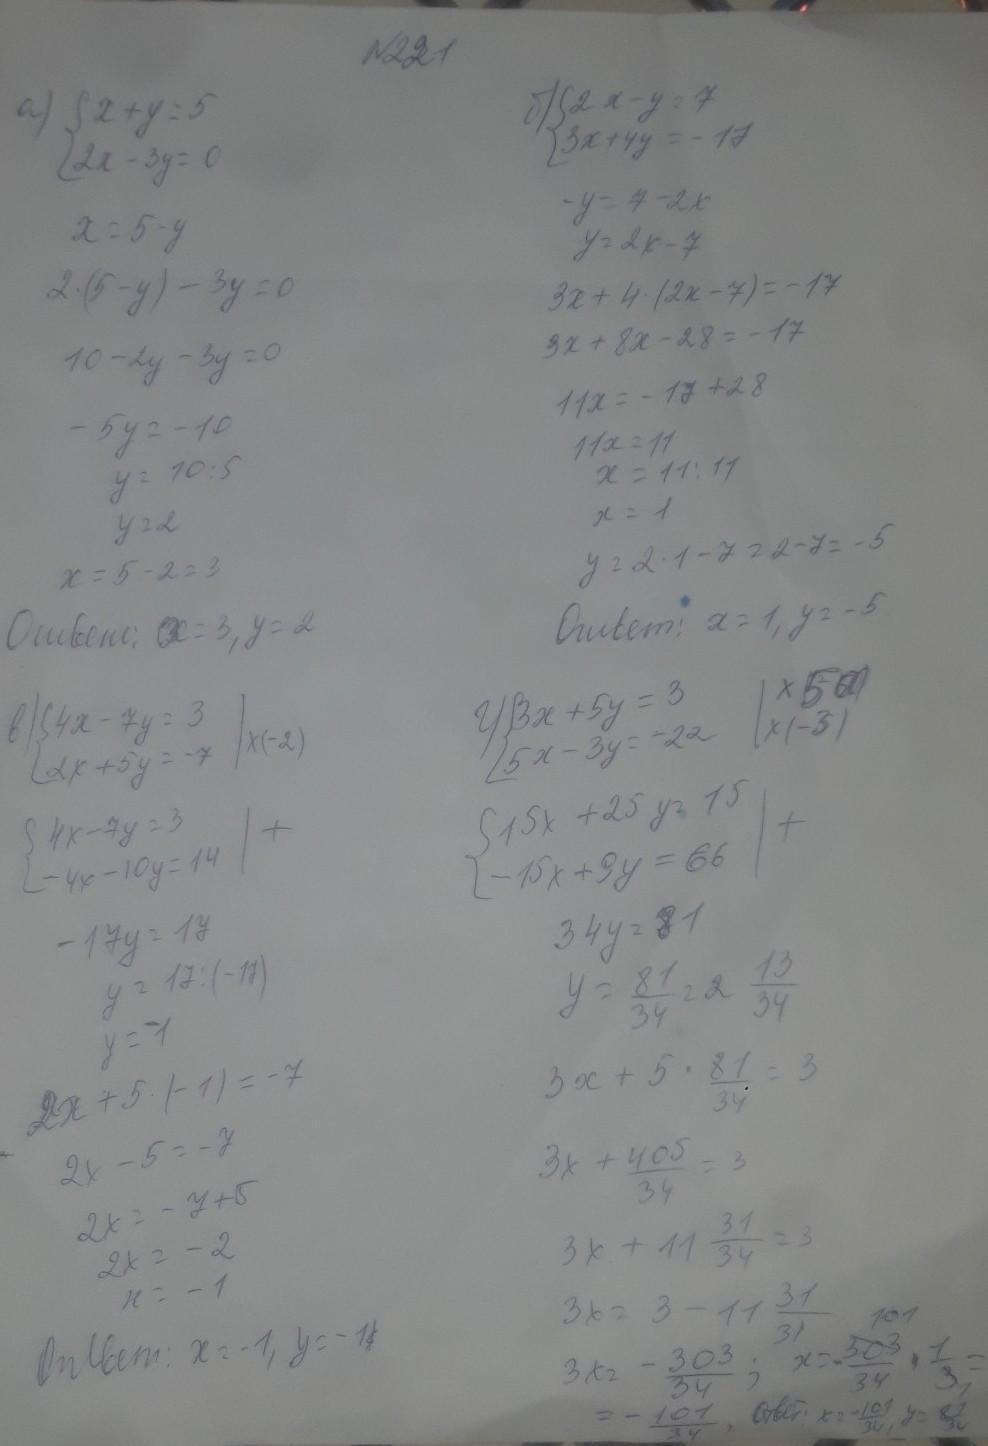 N221
а) {x+y=5
{2x-3y=0
x=5-y
2·(5-y)-3y=0
10-2y-3y=0
-5y=-10
y=10:5
y=2
x=5-2=3
Ответ: x=3, y=2
б) {2x-y=7
{3x+4y=-17
-y=7-2x
y=2x-7
3x+4·(2x-7)=-17
3x+8x-28=-17
11x=-17+28
11x=11
x=11:11
x=1
y=2·1-7=2-7=-5
Ответ: x=1, y=-5
в) {4x-7y=3
{2x+5y=-7 | x(-2)
{4x-7y=3 | +
{-4x-10y=14
-17y=17
y=17:(-17)
y=-1
2x+5·(-1)=-7
2x-5=-7
2x=-7+5
2x=-2
x=-1
Ответ: x=-1, y=-1
г) {3x+5y=3 | x5
{5x-3y=-22 | x(-3)
{15x+25y=15 | +
{-15x+9y=66
34y=81
y=81/34=2 13/34
3x+5·81/34=3
3x+405/34=3
3x+11 31/34=3
3x=3-11 31/31
3x=-303/34; x=-303/34·1/3= 101
=-101/34, Ответ: x=-101/34, y=81/34